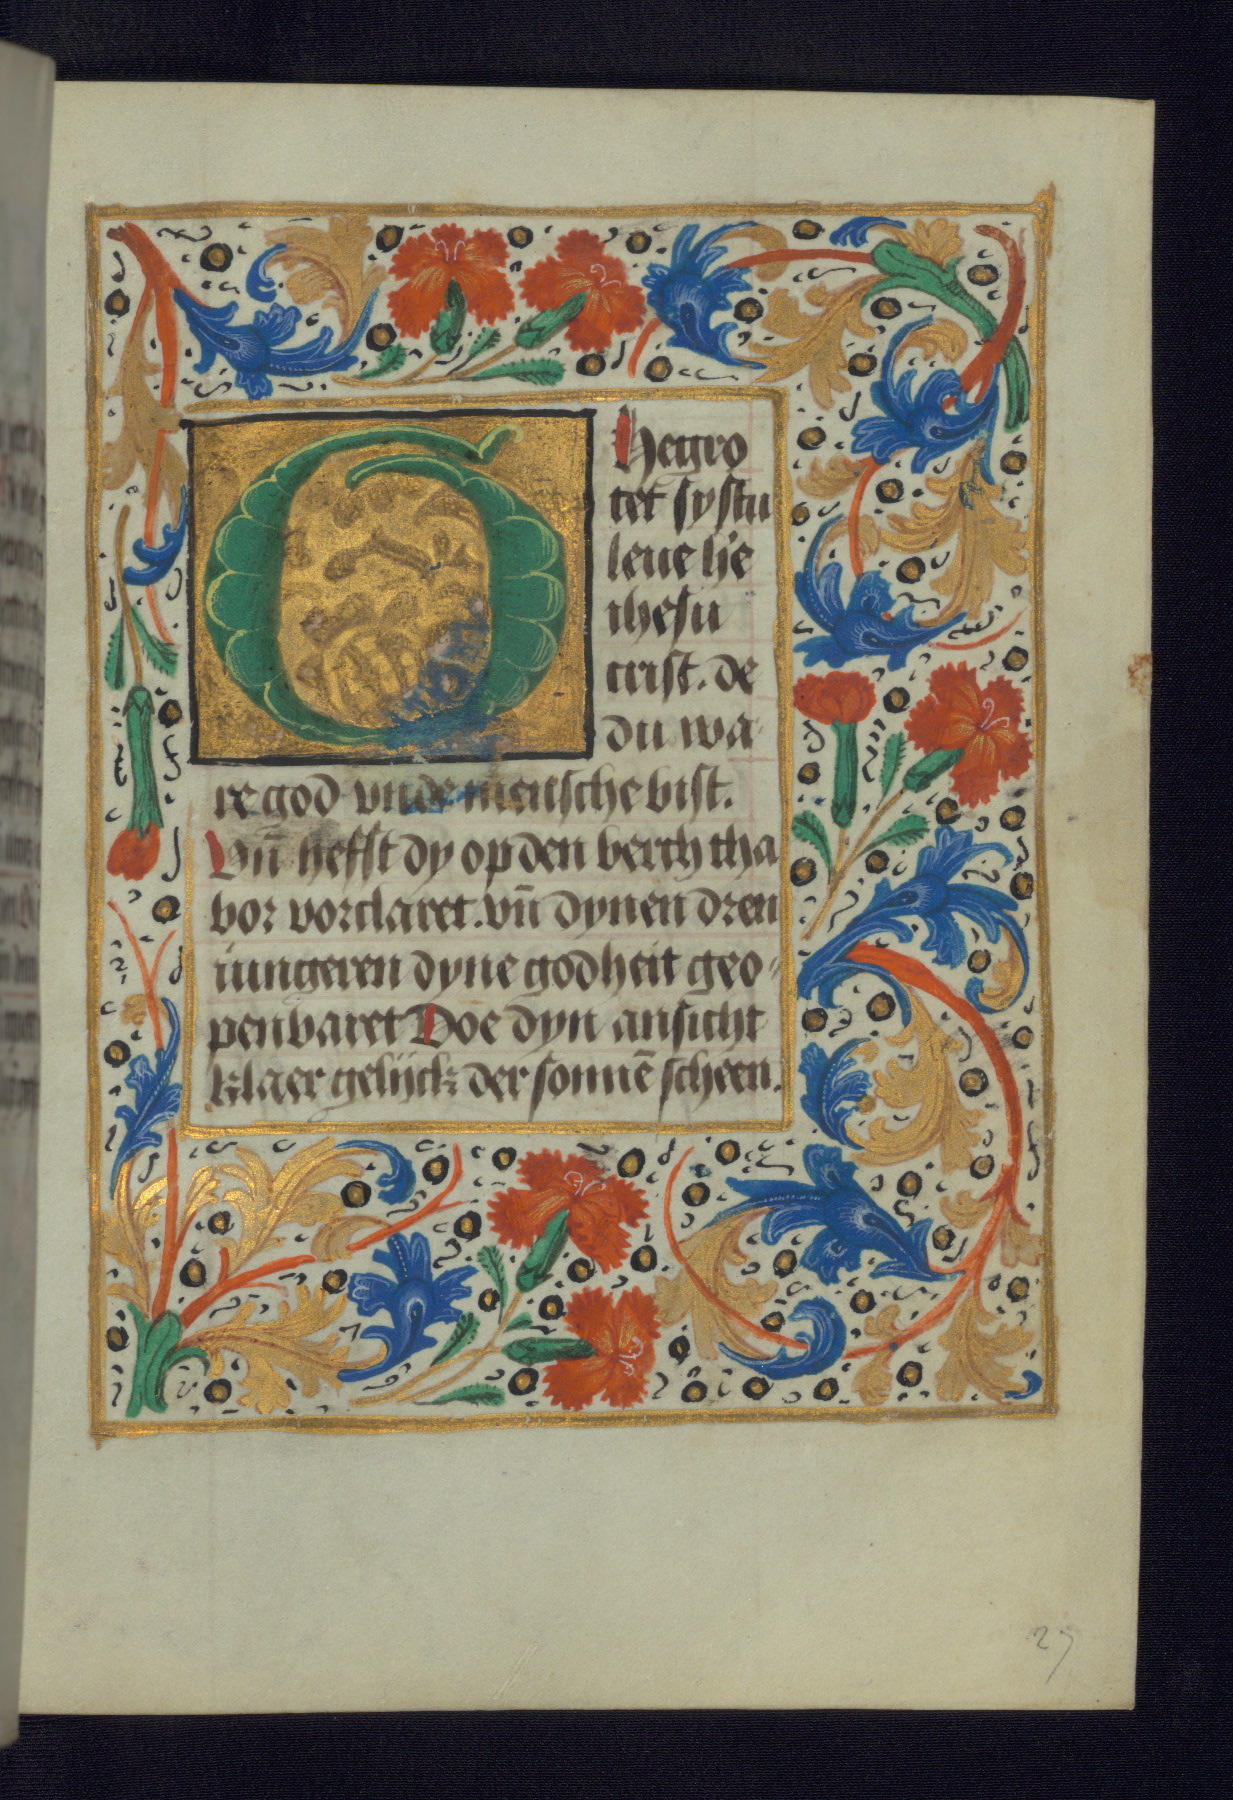 Ghegro
tet systu
leue h'e
ihesu
crist. de
du wa
re god vnde mensche bist.
Vn̄ hefft dy op den berch tha
bor vorclaret. vn̄ dynen dren
iungeren dyne godheit geo⸗
penbaret Doe dyn ansicht
klaer gelijck der sonnē scheen.
27